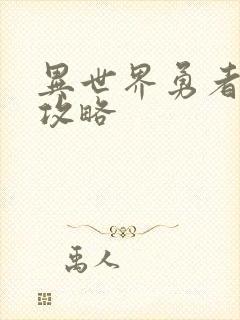 異世界勇者
攻略
禹人